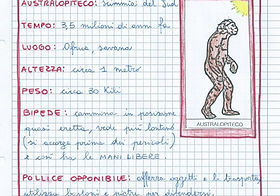 AUSTRALOPITECO: Scimmia del Sud
TEMPO: 3,5 milioni di anni fa
LUOGO: Africa, savana
ALTEZZA: circa 1 metro
PESO: circa 30 Kili
BIPEDE: cammina in posizione
quasi eretta, vede più lontano
(si accorge prima dei pericoli)
e così ha le MANI LIBERE.
AUSTRALOPITECO
POLLICE OPPONIBILE: afferra oggetti e li trasporta,
utilizza bastoni e pietre per difendersi.